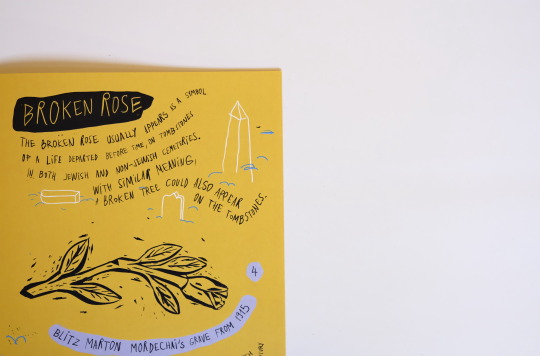 BROKEN ROSE
THE BROKEN ROSE USUALLY APPEARS IS A SYMBOL
OF A LIFE DEPARTED BEFORE TIME, ON TOMBSTONES
IN BOTH JEWISH AND NON-JEWISH CEMETERIES.
WITH SIMILAR MEANING,
A BROKEN TREE COULD ALSO APPEAR
ON THE TOMBSTONES.
4
BLITZ MARTON MORDECHAI'S GRAVE FROM 1915